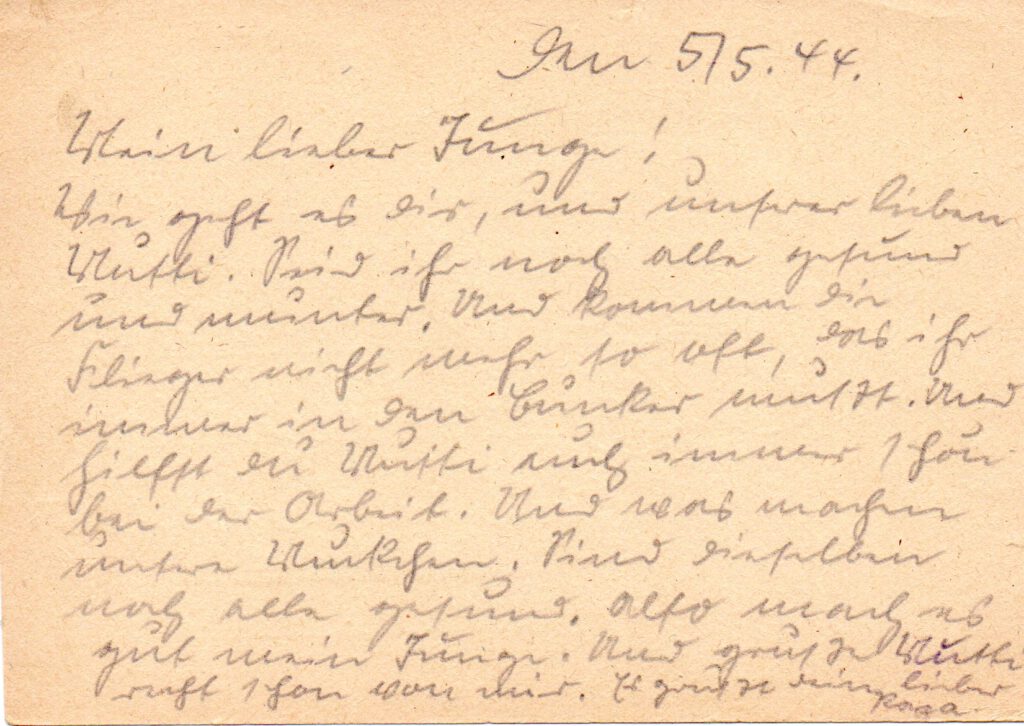 Den 5/5.44.
Mein lieber Junge!
Wie geht es dir, und unserer lieben
Mutti. Seid ihr noch alle gesund
und munter. Und kommen die
Flieger nicht mehr so oft, das ihr
immer in den Bunker mußt. Und
hilfst du Mutti auch immer schön
bei der Arbeit. Und was machen
unsere Muckchen. Sind dieselben
noch alle gesund. Also mach es
gut mein Junge. Und grüße Mutti
recht schön von mir. Es grüßt dein lieber
Papa.